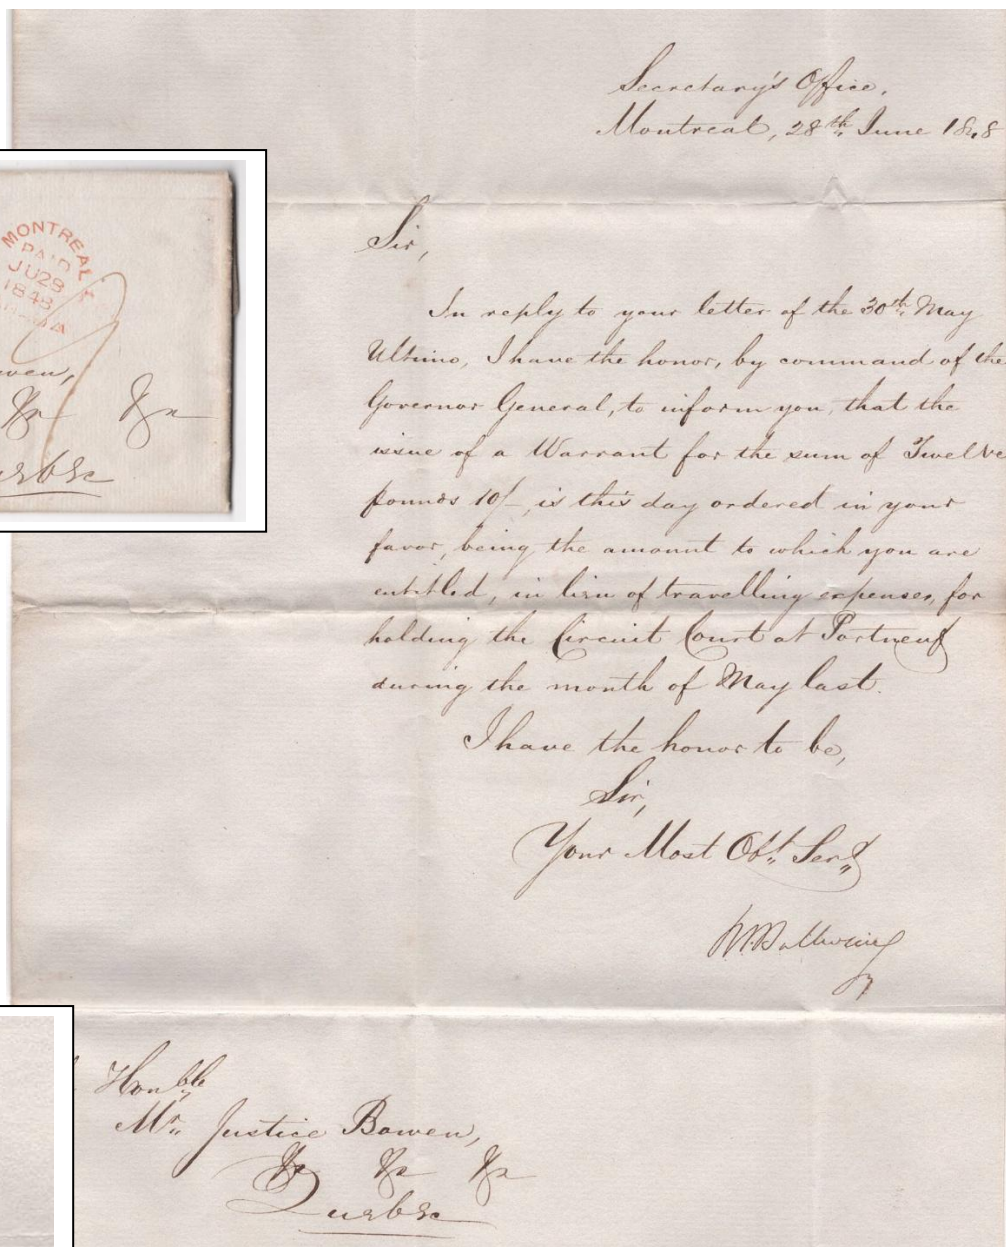 Secretary's Office,
Montreal, 28th June 1848
Sir,
In reply to your letter of the 30th May
Ultimo, I have the honor, by command of the
Governor General, to inform you, that the
issue of a Warrant for the sum of Twelve
pounds 10/-, is this day ordered in your
favor, being the amount to which you are
entitled, in lieu of travelling expenses, for
holding the Circuit Court at Portneuf
during the month of May last.
I have the honor to be,
Sir,
Your Most Obt. Servt
Honble
Mr. Justice Bowen,
&c &c &c
Quebec
MONTREAL
PAID
JU 29
1848
wen,
&c &c
uebec